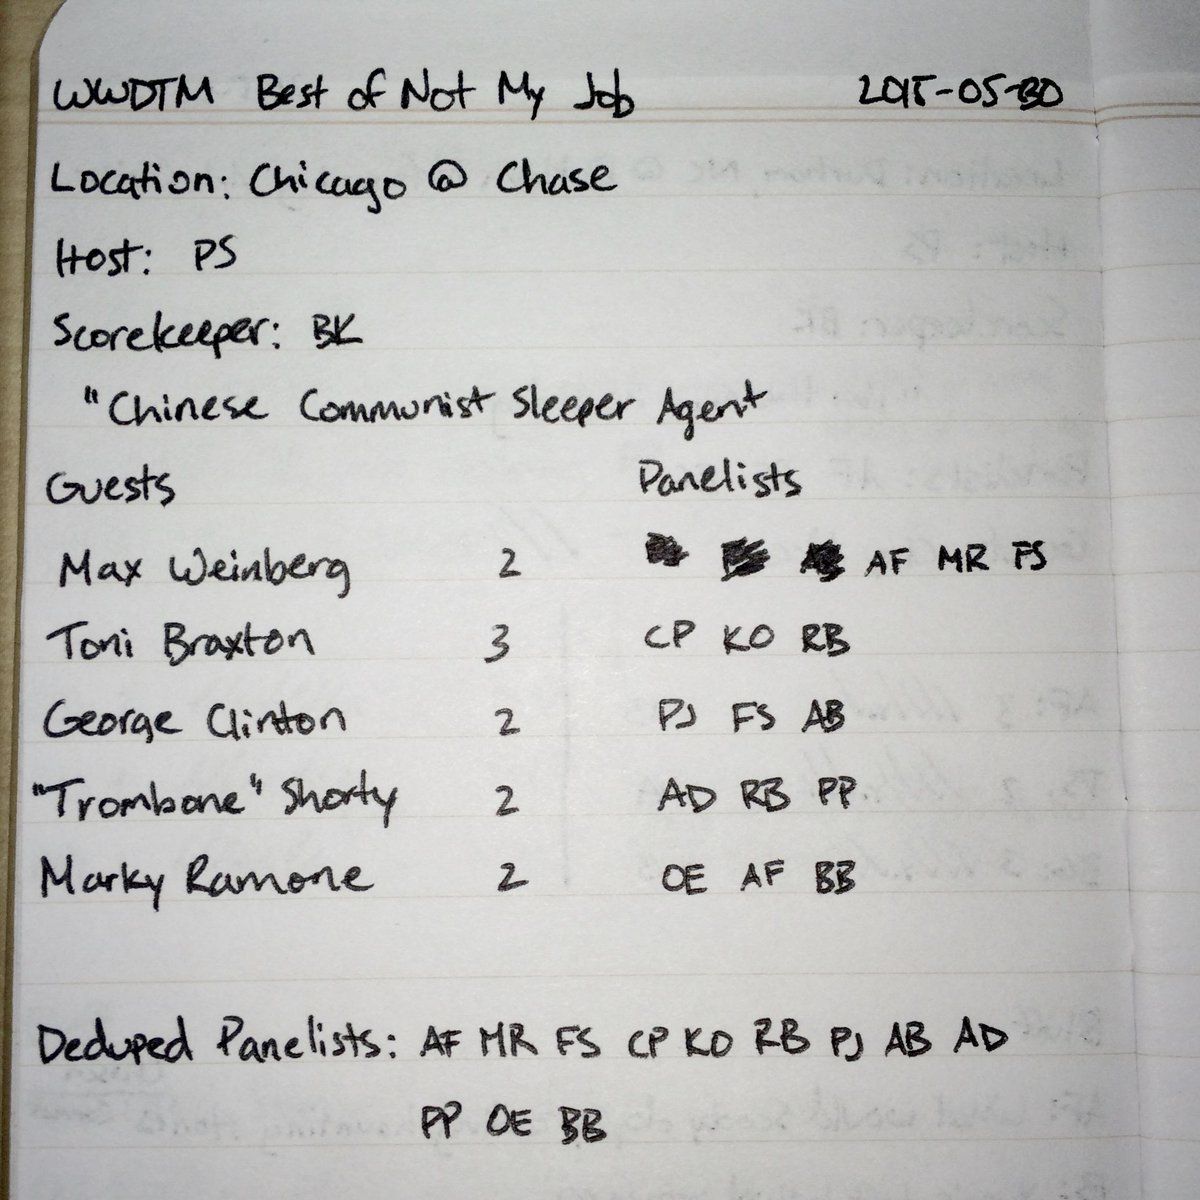 WWDTM Best of Not My Job 2015-05-30
Location: Chicago @ Chase
Host: PS
Scorekeeper: BK
"Chinese Communist Sleeper Agent
Guests Panelists
Max Weinberg 2 AF MR FS
Toni Braxton 3 CP KO RB
George Clinton 2 PJ FS AB
"Trombone" Shorty 2 AD RB PP
Marky Ramone 2 OE AF BB
Deduped Panelists: AF MR FS CP KO RB PJ AB AD
PP OE BB